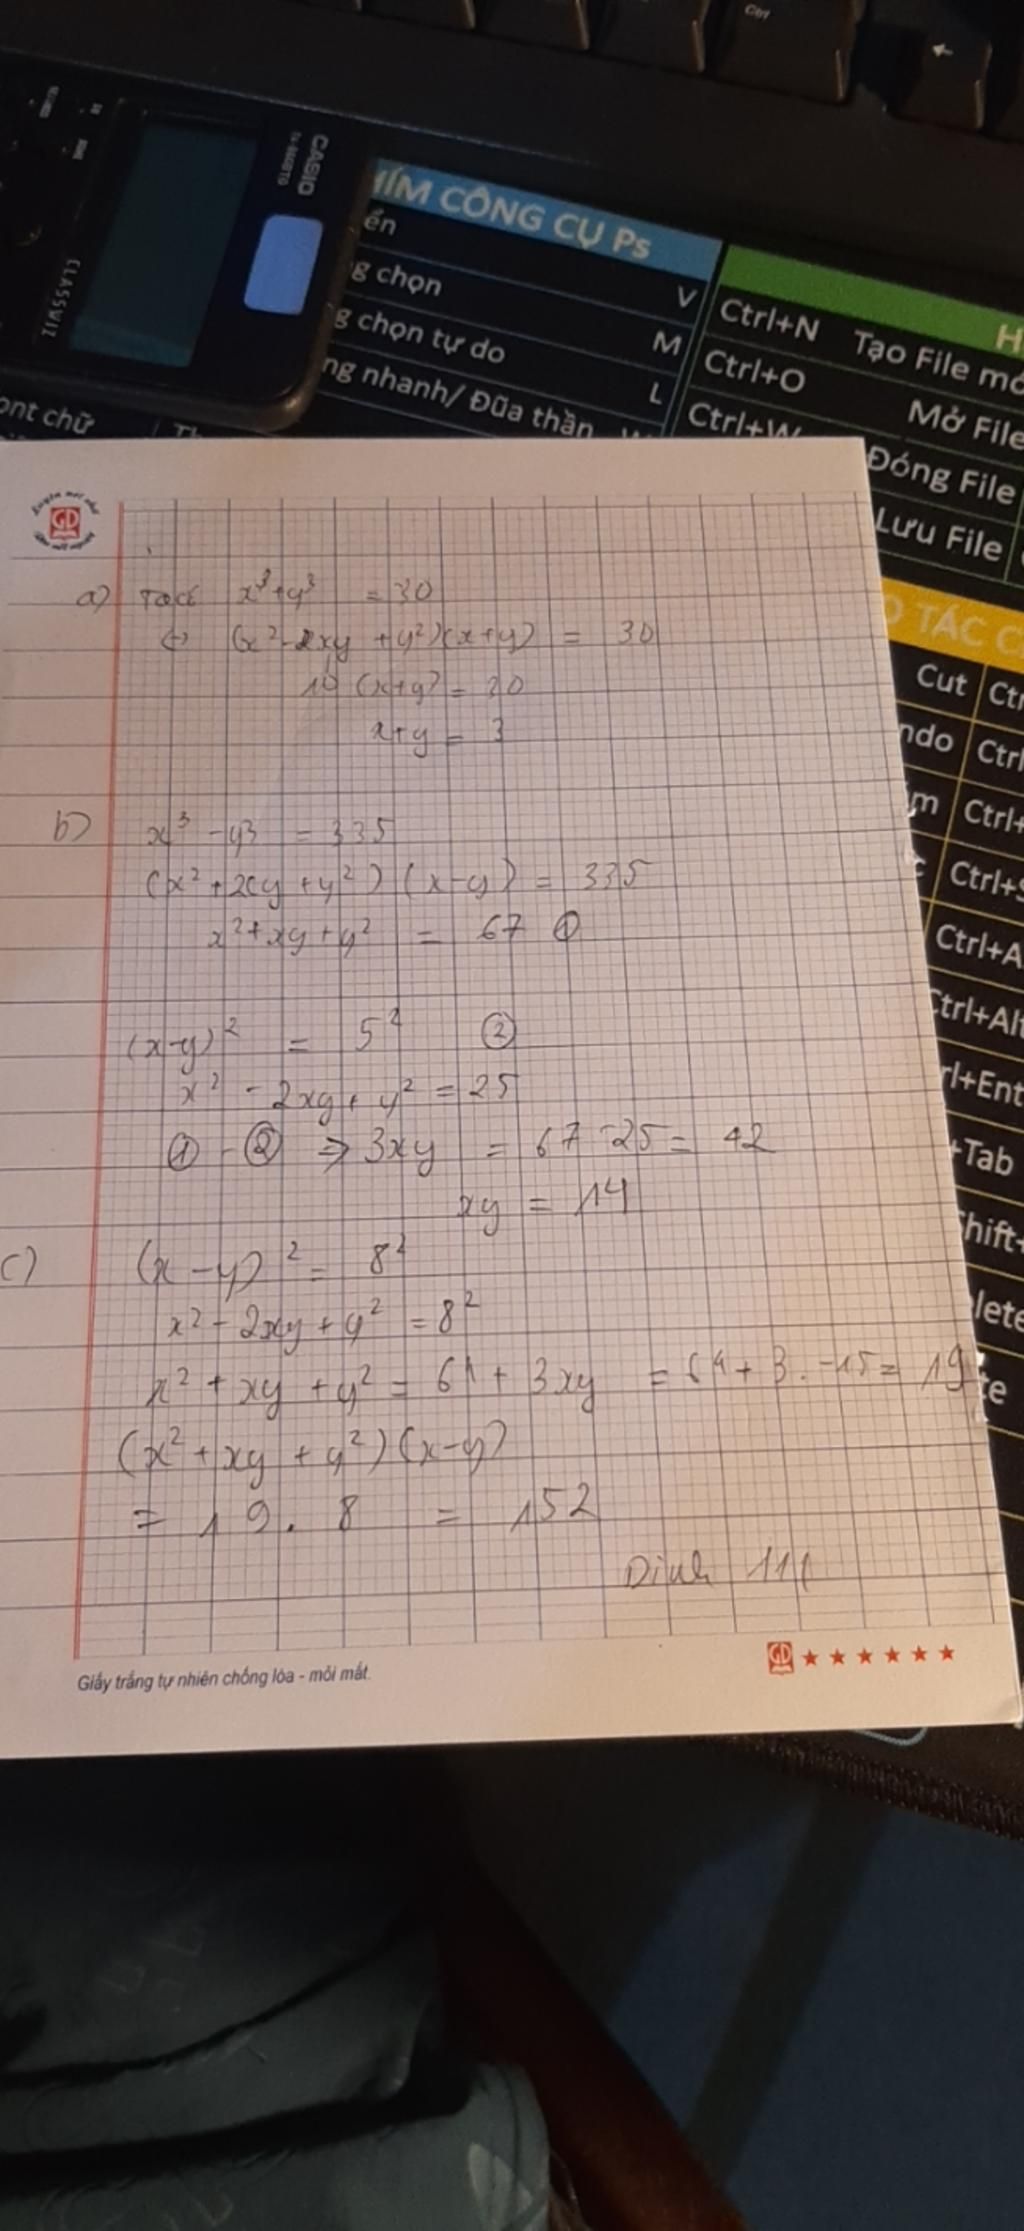 Ctrl
CASIO
CLASSWIZ
HÍM CÔNG CỤ Ps
ển
g chọn V
g chọn tự do M
ng nhanh/ Đũa thần L
ont chữ
H
Ctrl+N Tạo File mớ
Ctrl+O Mở File
Ctrl+W Đóng File
Lưu File
O TÁC C
Cut Ctr
ndo Ctrl
Ctrl+
Ctrl+S
Ctrl+A
Ctrl+Alt
rl+Ent
+Tab
Shift+
lete
te
GD
a) Ta có x³+y³ = 30
(x²-xy+y²)(x+y) = 30
10(x+y) = 30
x+y = 3
b) x³-y³ = 335
(x²+xy+y²)(x-y) = 335
x²+xy+y² = 67 ①
(x-y)² = 5² ②
x²-2xy+y² = 25
① - ② ⇒ 3xy = 67-25 = 42
xy = 14
c) (x-y)² = 8²
x²-2xy+y² = 8²
x²+xy+y² = 64+3xy = 64+3.-15 = 19
(x²+xy+y²)(x-y)
= 19.8 = 152
GD
Giấy trắng tự nhiên chống lóa - mỏi mắt.